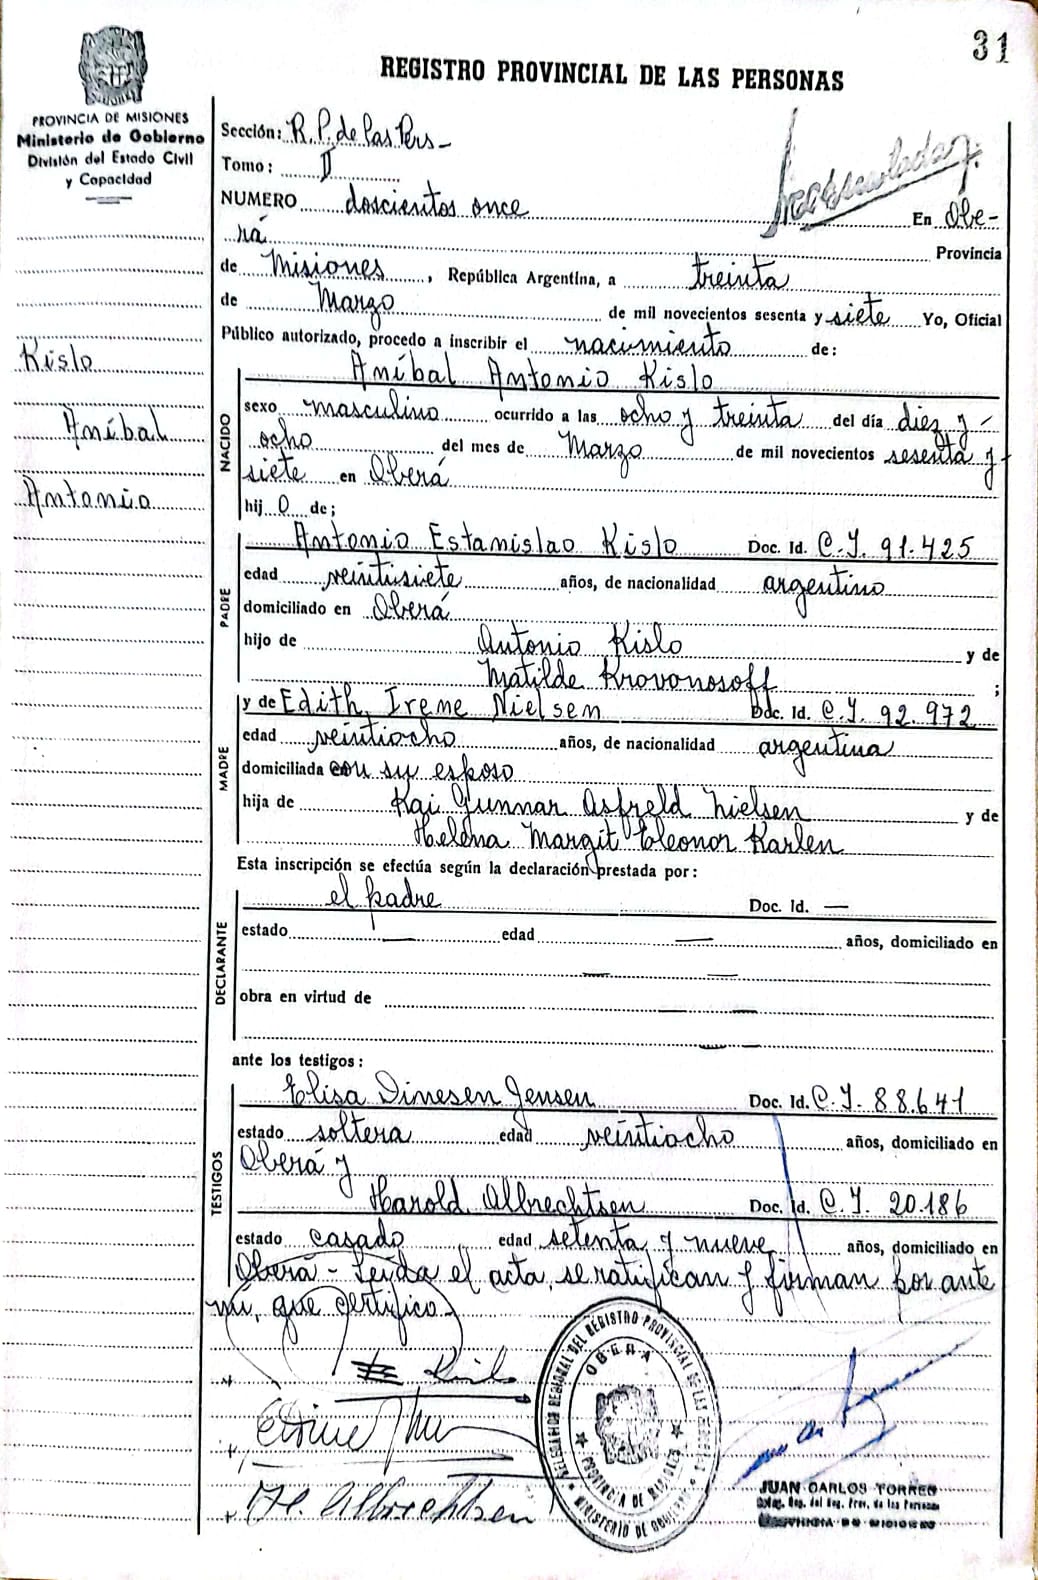 31
REGISTRO PROVINCIAL DE LAS PERSONAS
PROVINCIA DE MISIONES
Ministerio de Gobierno
División del Estado Civil
y Capacidad
Sección: R.P. de las Pers-
Tomo: II
NUMERO doscientos once En Obe-
rá Provincia
de Misiones, República Argentina, a treinta
de Marzo de mil novecientos sesenta y siete Yo, Oficial
Público autorizado, procedo a inscribir el nacimiento de:
Kislo
Aníbal
Antonio
NACIDO
Aníbal Antonio Kislo
sexo masculino ocurrido a las ocho y treinta del día diez y
ocho del mes de Marzo de mil novecientos sesenta y
siete en Oberá
hij o de;
PADRE
Antonio Estanislao Kislo Doc. Id. C.I. 91.425
edad veintisiete años, de nacionalidad argentino
domiciliado en Oberá
hijo de Antonio Kislo y de
Matilde Krovonosoff ;
MADRE
y de Edith Irene Nielsen Doc. Id. C.I. 92.972
edad veintiocho años, de nacionalidad argentina
domiciliada con su esposo
hija de Kai Gunnar Asfreld Nielsen y de
Helena Margit Eleonor Karlen
Esta inscripción se efectúa según la declaración prestada por:
DECLARANTE
el padre Doc. Id. —
estado — edad — años, domiciliado en
— —
obra en virtud de — —
— —
ante los testigos:
TESTIGOS
Elisa Dinesen Jensen Doc. Id. C.I. 88.641
estado soltera edad veintiocho años, domiciliado en
Oberá y
Harold Albrechtsen Doc. Id. C.I. 20.186
estado casado edad setenta y nueve años, domiciliado en
Oberá - Leída el acta, se ratifican y firman por ante
mí, que certifico.-
H. Albrechtsen
DELEGACION REGIONAL DEL REGISTRO PROVINCIAL DE LAS PERSONAS
OBERA
PROVINCIA DE MISIONES
MINISTERIO DE GOBIERNO
JUAN CARLOS TORRES
Deleg. Reg. del Reg. Prov. de las Personas
PROVINCIA DE MISIONES